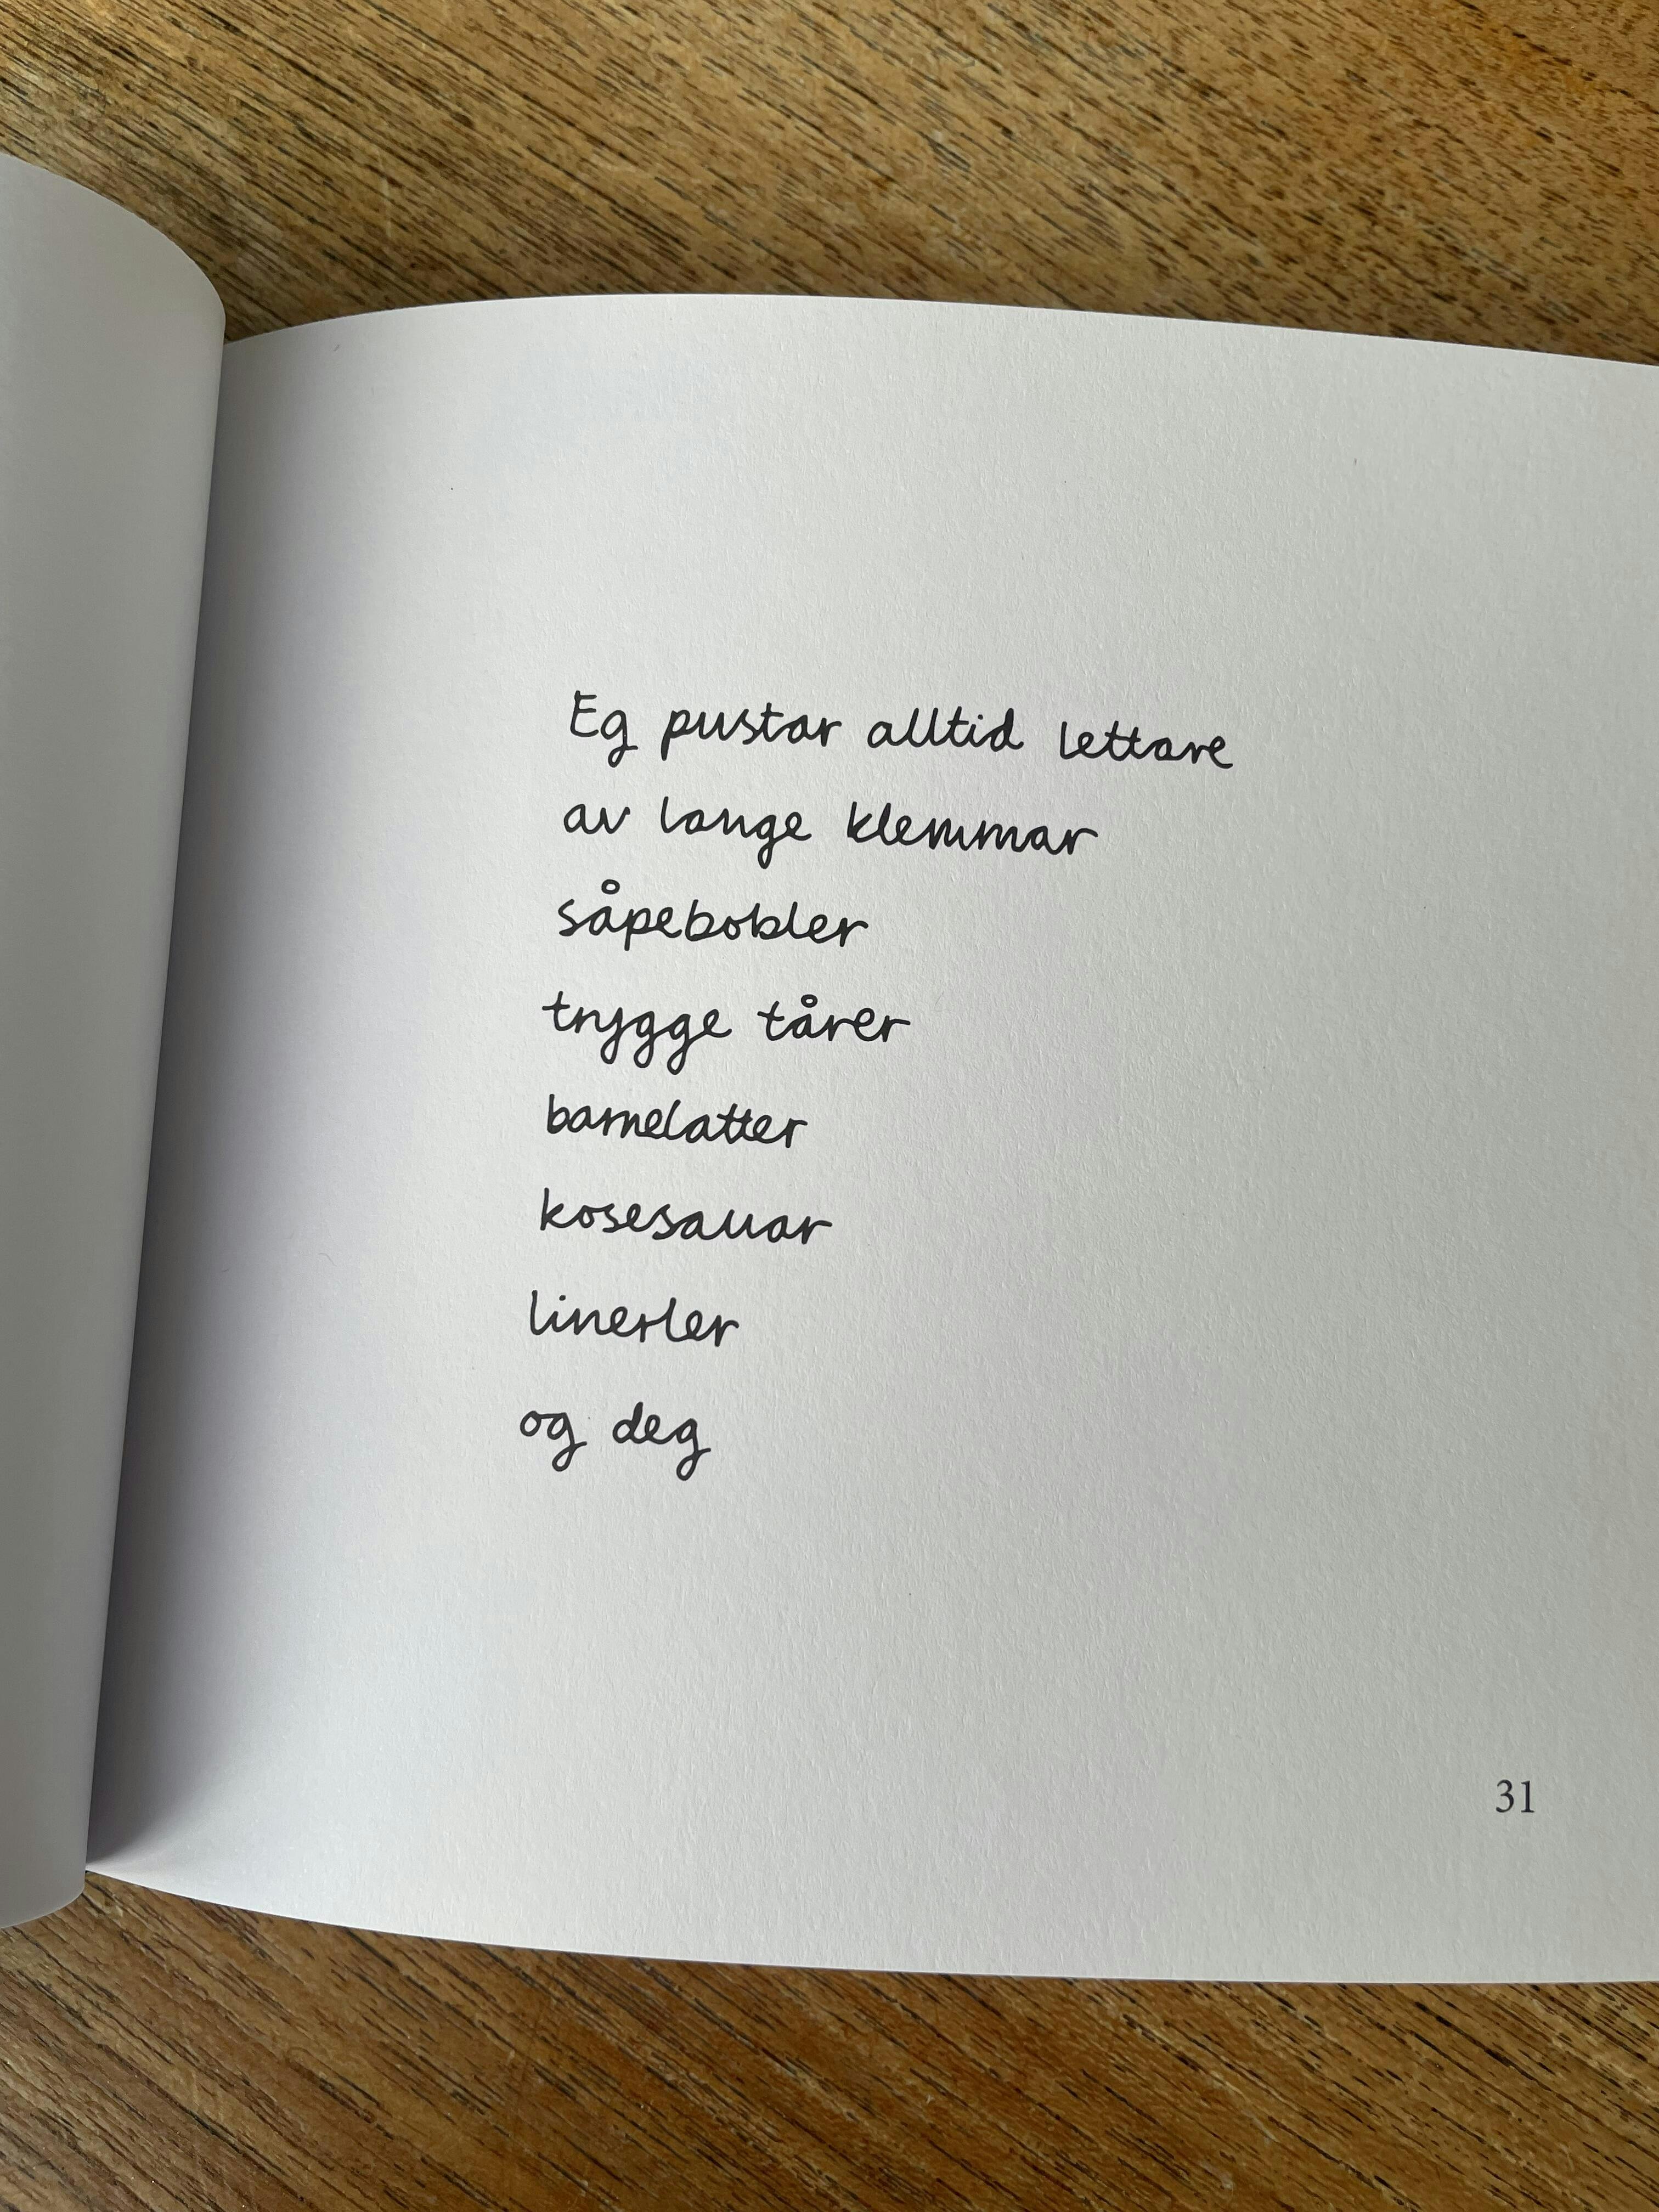 Eg pustar alltid lettare
av lange klemmar
såpebobler
trygge tårer
barnelatter
kosesauar
linerler
og deg
31